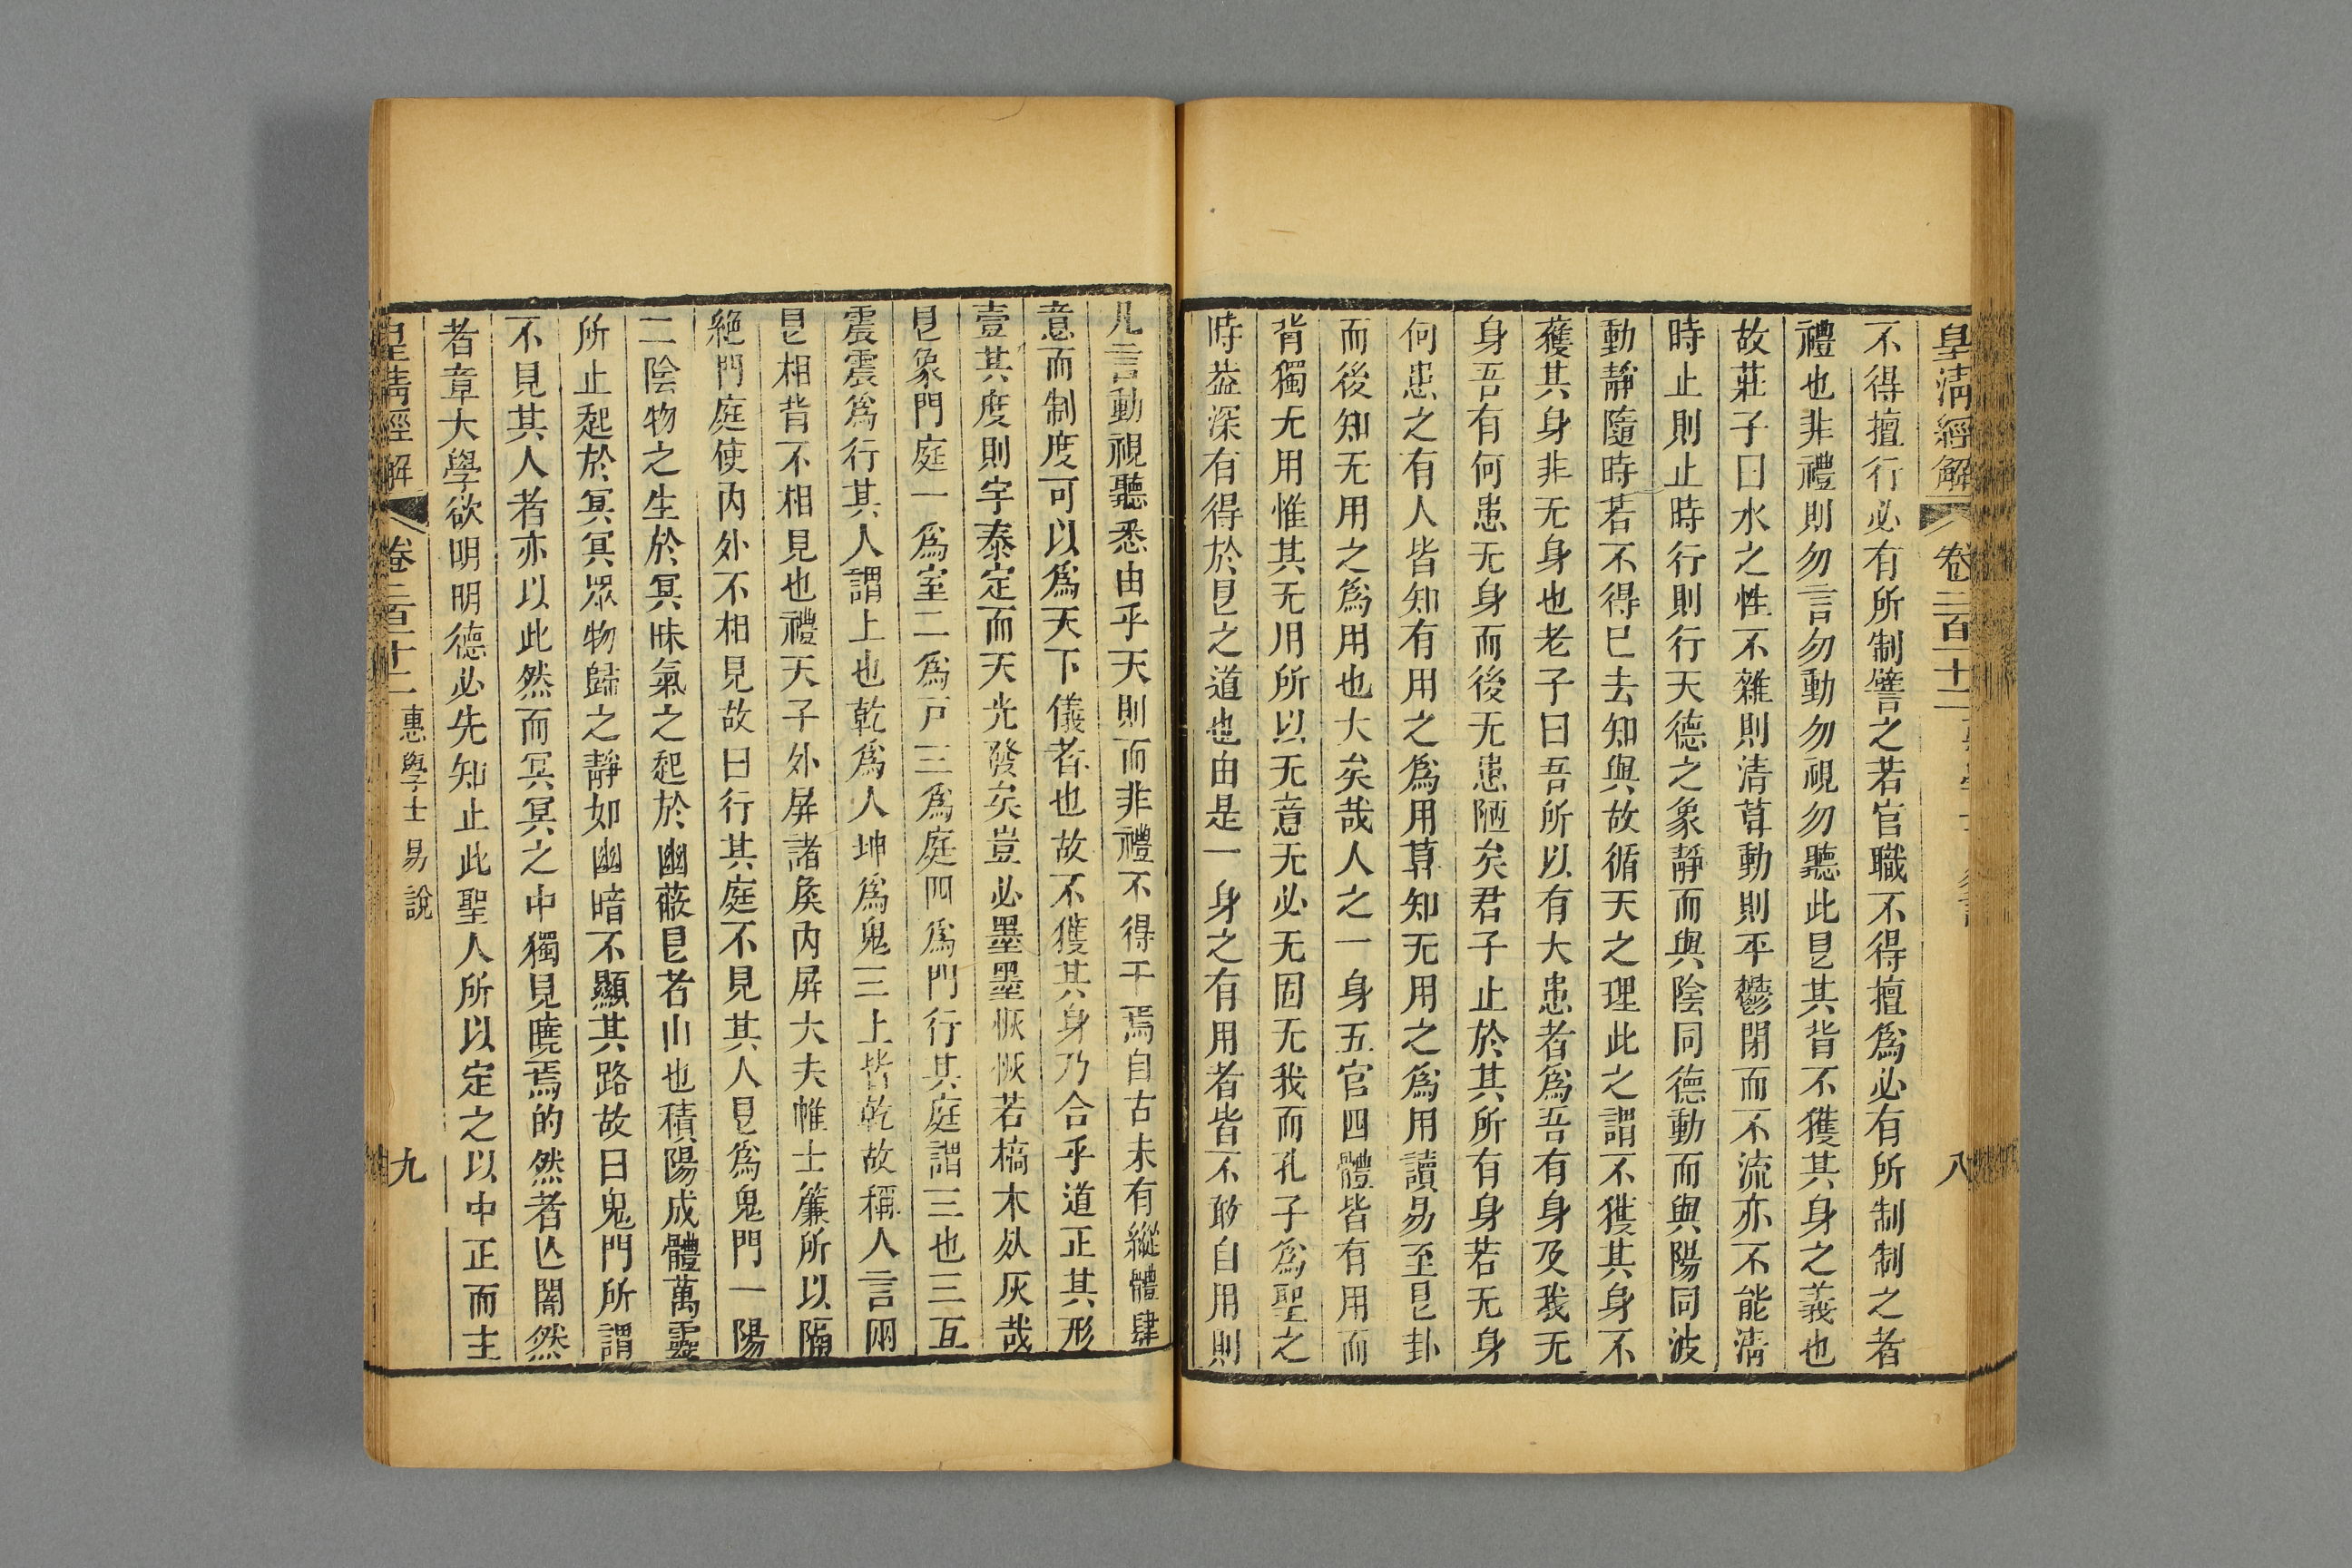 皇淸經解 卷二百十二 八
不得擅行必有所制譬之若官職不得擅爲必有所制制之者
禮也非禮則勿言勿動勿視勿聽此㫔其背不獲其身之義也
故莊子曰水之性不雜則清莫動則平鬱閉而不流亦不能清
時止則止時行則行天德之象靜而與陰同德動而與陽同波
動靜隨時若不得已去知與故循天之理此之謂不獲其身不
獲其身非无身也老子曰吾所以有大患者爲吾有身及我无
身吾有何患无身而後无患陋矣君子止於其所有身若无身
何患之有人皆知有用之爲用莫知无用之爲用讀易至㫔卦
而後知无用之爲用也大矣哉人之一身五官四體皆有用而
背獨无用惟其无用所以无意无必无固无我而孔子爲聖之
時葢深有得於㫔之道也由是一身之有用者皆不敢自用則
凡言動視聽悉由乎天則而非禮不得干焉自古未有縱體肆
意而制度可以爲天下儀者也故不獲其身乃合乎道正其形
壹其度則宇泰定而天光發矣豈必墨墨恢恢若槁木死灰哉
㫔象門庭一爲室二爲戸三爲庭四爲門行其庭謂三也三互
震震爲行其人謂上也乾爲人坤爲鬼三上皆乾故稱人言兩
㫔相背不相見也禮天子外屏諸矦内屏大夫帷士簾所以隔
絶門庭使内外不相見故曰行其庭不見其人㫔爲鬼門一陽
二陰物之生於冥昧氣之起於幽蔽㫔者山也積陽成體萬靈
所止起於冥冥眾物歸之靜如幽暗不顯其路故曰鬼門所謂
不見其人者亦以此然而冥冥之中獨見曉焉的然者亾闇然
者章大學欲明明德必先知止此聖人所以定之以中正而主
皇淸經解 卷二百十二 惠學士易說 九